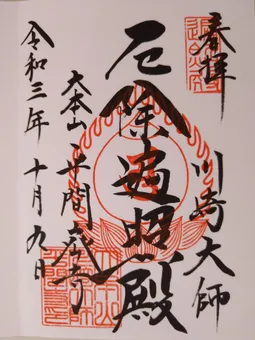 奉拝
川崎大師
厄除遍照殿
大本山
平間寺
令和三年
十月九日